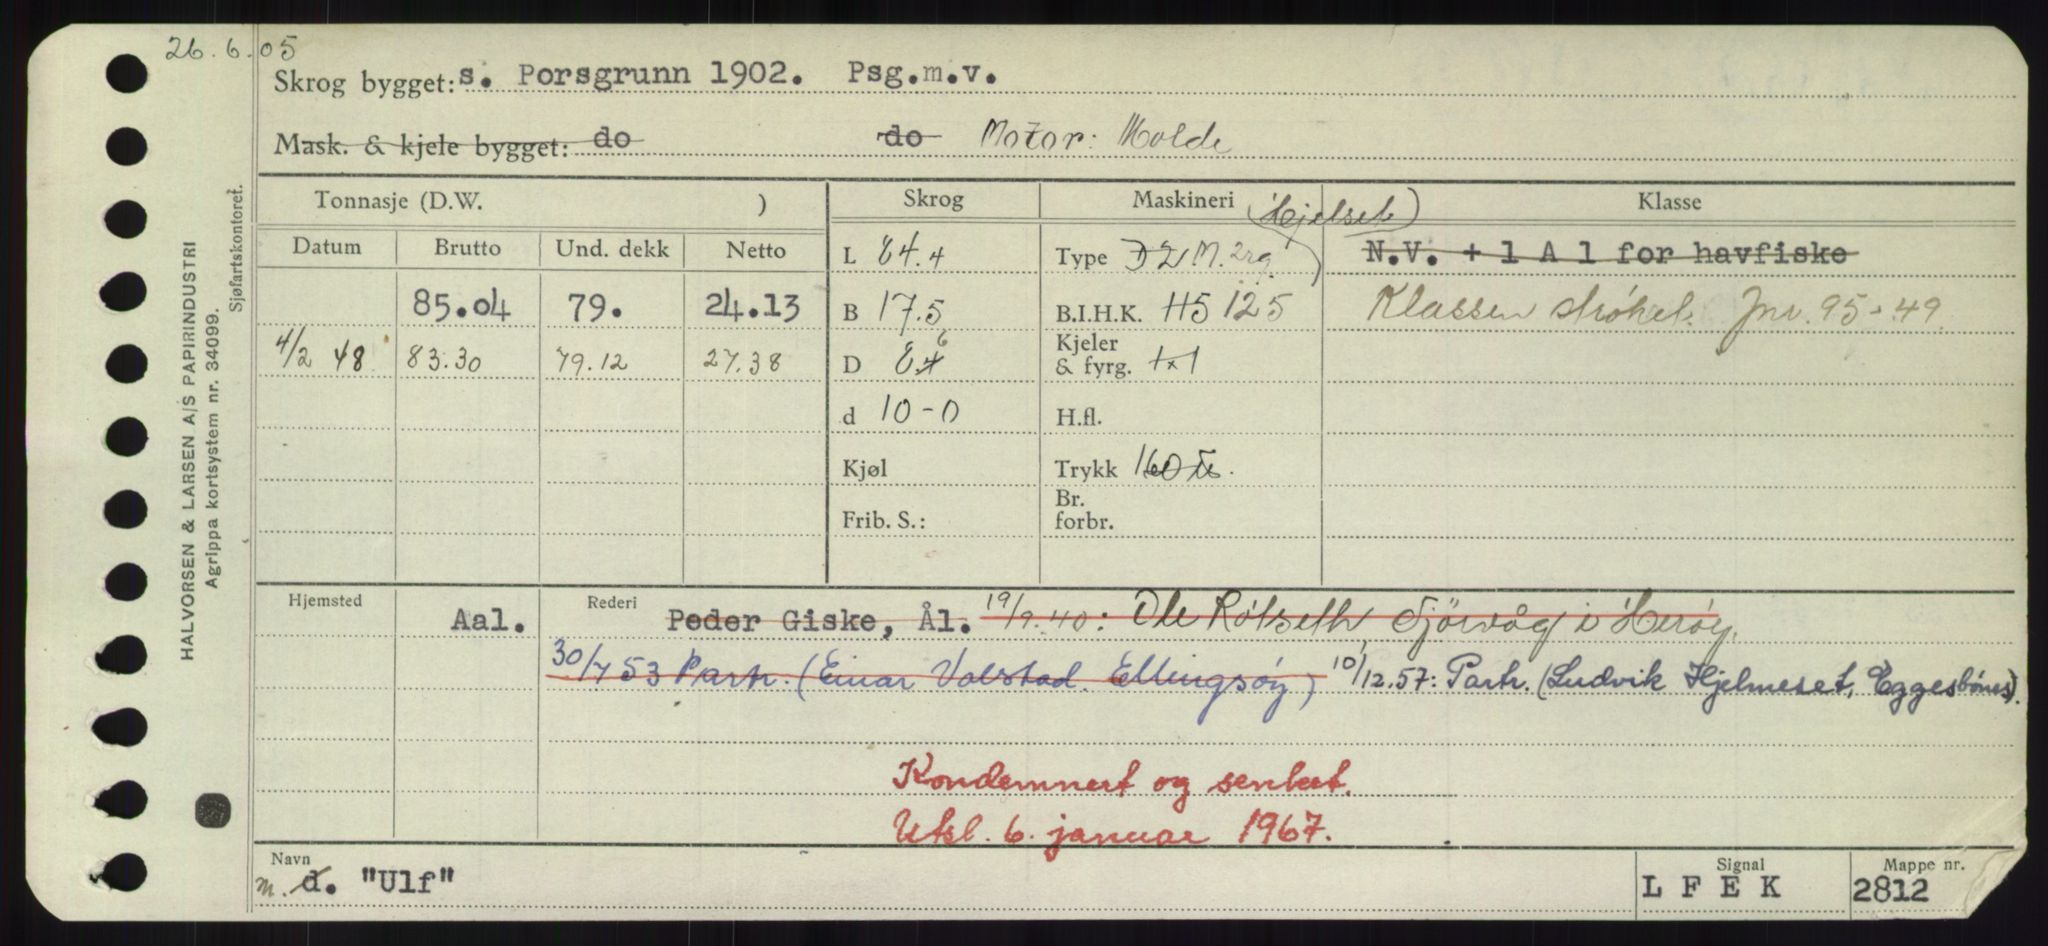 26.6.05
Skrog bygget: s. Porsgrunn 1902. Psg.m.v.
Mask. & kjele bygget: do do Motor: Molde
Tonnasje (D.W. ) Skrog Maskineri (Hjelset) Klasse
Datum Brutto Und. dekk Netto L 84.4 Type D 2 M. 2rg. N.V. + 1 A 1 for havfiske
85.04 79. 24.13 B 17.5 B.I.H.K. H5 125 Klassen strøket. Jnr. 95-49.
4/2 48 83.30 79.12 27.38 D 8.4 6 Kjeler & fyrg. 1x1
d 10-0 H.fl.
Kjøl Trykk 160
Frib. S.: Br. forbr.
Hjemsted Aal. Rederi Peder Giske, Ål. 19/9.40: Ole Røtseth, Sjörvåg i Herøy.
30/7 53 Partr. (Einar Valstad. Ellingsøy) 10/12.57: Partr. (Ludvik Hjelmeset, Eggesbönes).
Kondemnert og senket.
Utsl. 6. januar 1967.
Navn m. d. "Ulf" Signal L F E K Mappe nr. 2812
HALVORSEN & LARSEN A/S PAPIRINDUSTRI
Agrippa kortsystem nr. 34099.
Sjøfartskontoret.